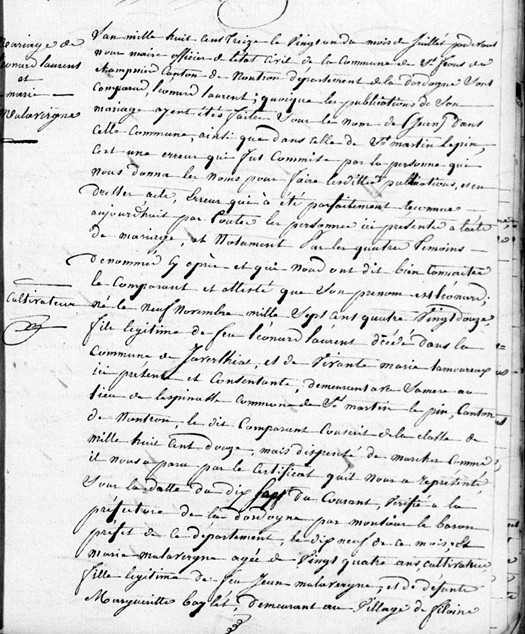 Mariage de
Léonard Laurent
et
marie
Malavergne
L'an mille huit cent treize le vingt un du mois de juillet par devant
nous maire officier de letat Civil de la Commune de St frons de
champnier Canton de Nontron departement de la dordogne Sont
Comparus léonard laurent ; quoique les publications de Son
mariage ayent étés faites Sous le nom de (Jean) dans
Cette Commune, ainsi que dans Celle de St martin lepin,
C'est une erreur qui fut Commise par la personne qui
nous donna les Noms pour faire lesdittes publications, et en
dresser acte, Erreur qui à été parfaitement reconnue
aujourdhuit par toutes les personnes ici presente a lacte
de mariage, et Notament Par les quatre temoins
denommés Cy après et qui Nous ont dit bien Connoitre
le Comparant et attesté que Son prenom est léonard ;
Cultivateur
né le neuf Novembre mille Sept cent quatre Vingt douze,
fils legitime de feu léonard laurent décédé dans la
Commune de Javerlhiac, et de Vivante marie
ici presente et Consentante, demeurant avec Sa mere au
lieu de lespinasse Commune de St martin le pin, Canton
de Nontron, le dit Comparant Conscrit de la Classe de
mille huit Cent douze, mais dispensé de marcher Comme
il nous a paru par le Certificat quil nous a representé
Sous la datte du dix Sept du Courant, Vérifié a la
préfecture de la dordogne par monsieur le baron
préfet de Ce département, le dix neuf de Ce mois ; et
marie malavergne agée de Vingt quatre ans, cultivatrice
fille legitime de feu Jean malavergne, et de défunte
Marguerite, demeurant au Village de